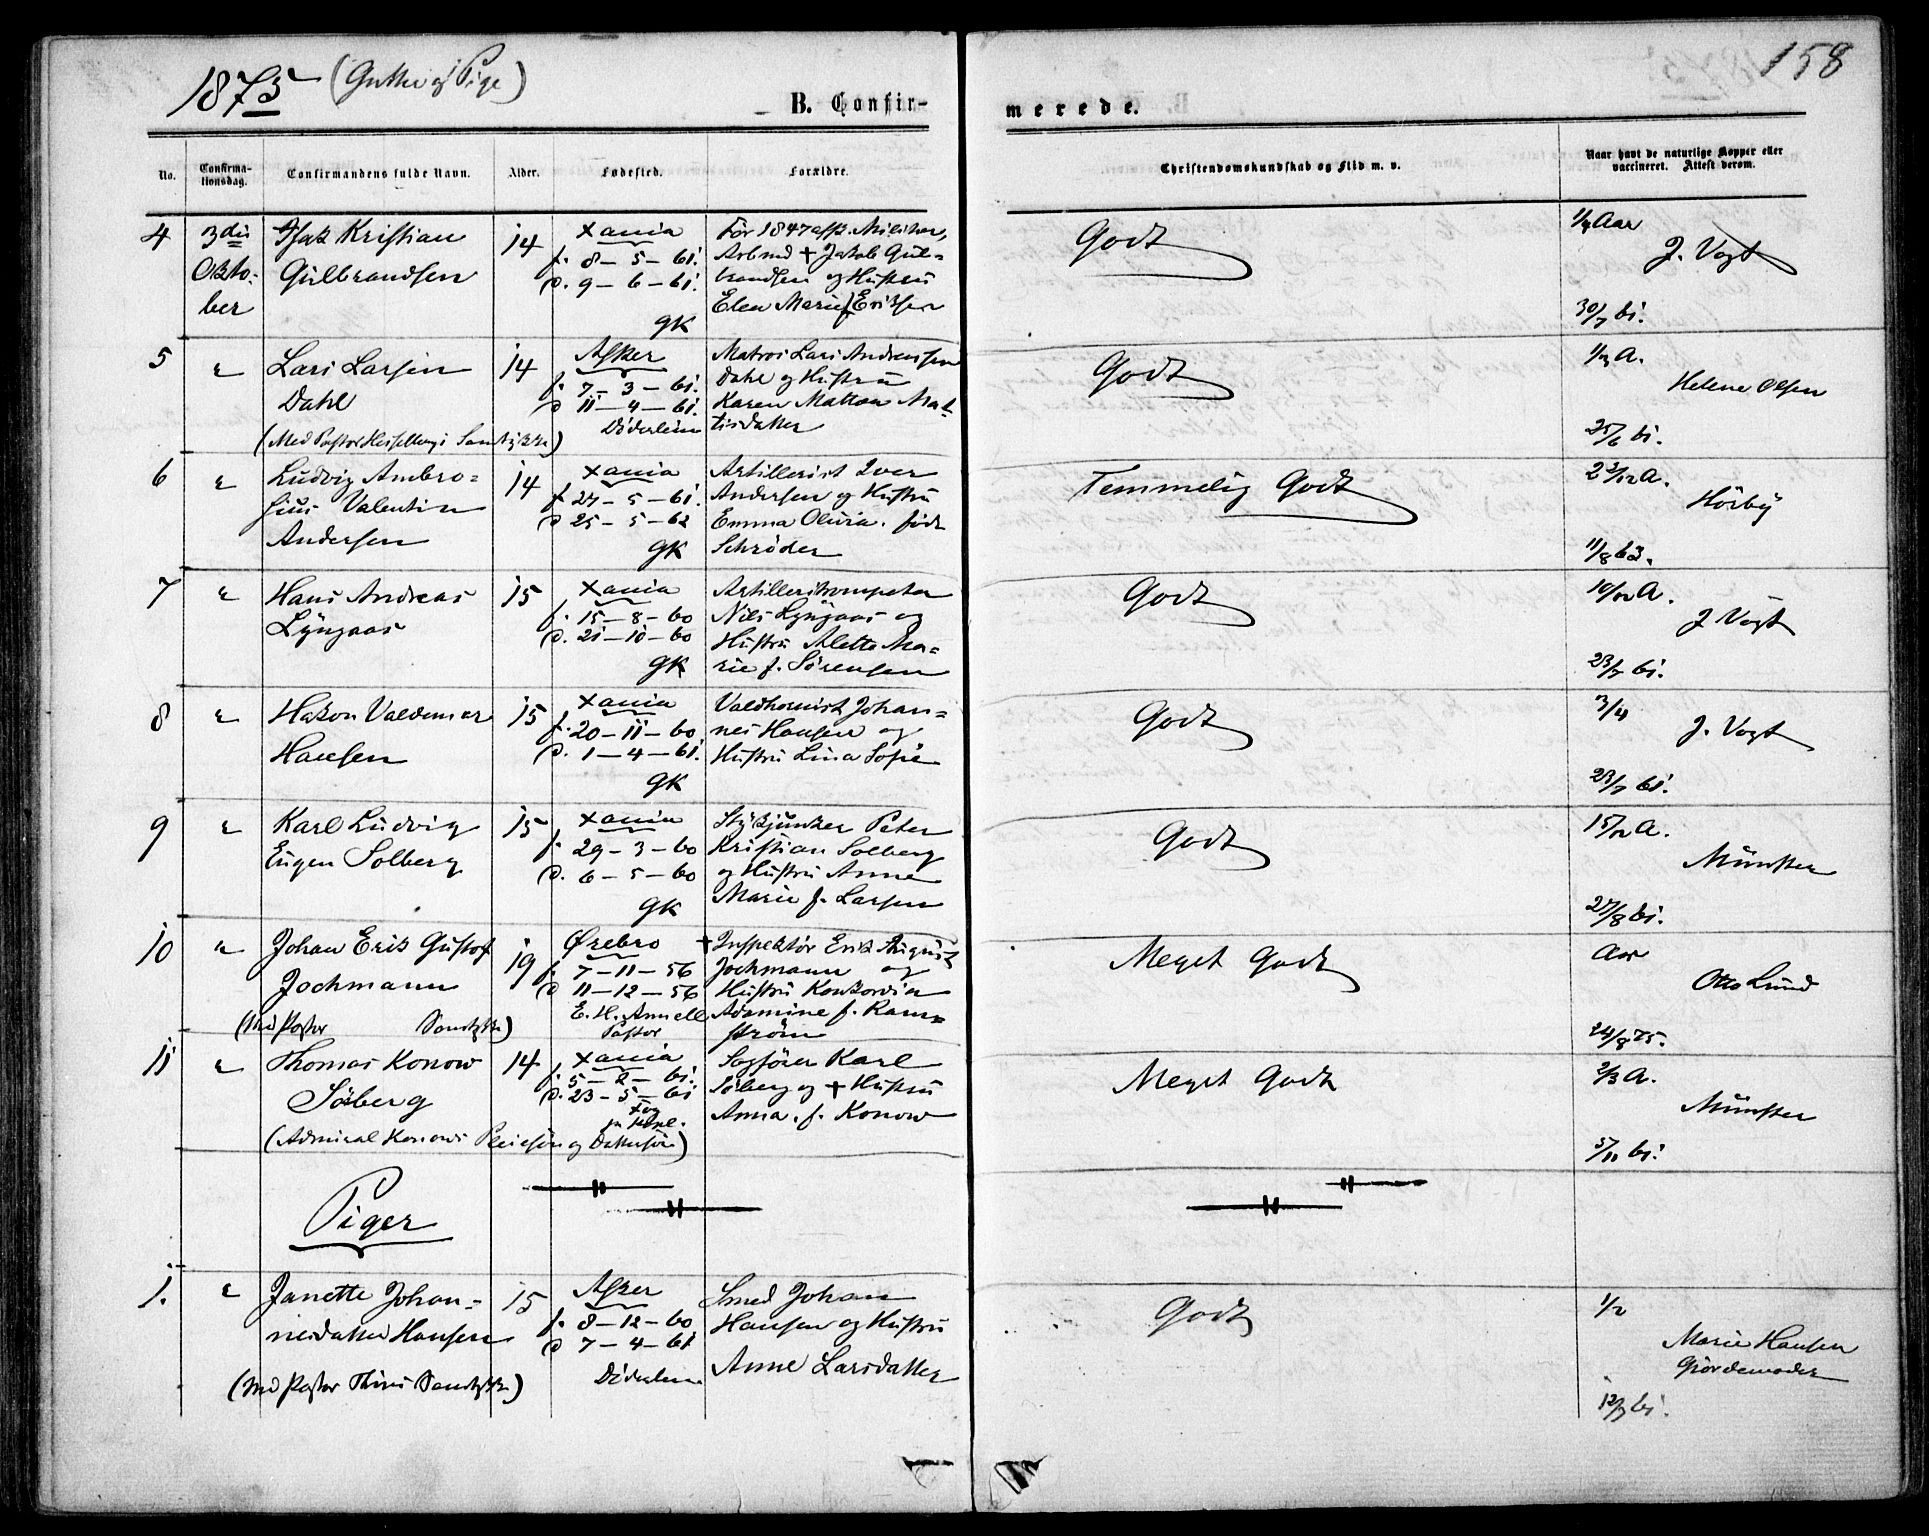 1875 (Gutter og Pige)
158
B. Confir-
merede.
No.
Confirma-
tionsdag.
Confirmandens fulde Navn.
Alder.
Fødested.
Forældre.
Christendomskundskab og Flid m. v.
Naar havt de naturlige Kopper eller
vaccineret. Attest derom.
4
3die
Okto-
ber
Isak Kristian
Gulbrandsen
14
Xania
f. 8-5-61.
d. 9-6-61.
GK
Før 1847 afsk. Militær,
Arbmd + Jakob Gul-
brandsen og Hustru
Elen Marie f Eriksen
Godt
1/4 Aar
J. Vogt
30/7 61.
5
"
Lars Larsen
Dahl
(Med Pastor Hesselbergs Samtykke)
14
Asker
f. 7-3-61.
d 11-4-61.
Döderlein
Matros Lars Andreassen
Dahl og Hustru
Karen Mattea Mat-
tisdatter
Godt
1/4 A.
Helene Olsen
25/6 61.
6
"
Ludvig Ambro-
sius Valentin
Andersen
14
Xania
f 27-5-61.
d 25-5-62
GK
Artillerist Iver
Andersen og Hustru
Emma Olivia. født
Schrøder
Temmelig Godt
2 2/12 A.
Hörbÿ
11/8 63.
7
"
Hans Andreas
Lÿngaas
15
Xania
f. 15-8-60
d. 21-10-60
GK
Artilleritrompeter
Nils Lÿngaas og
Hustru Alette Ma-
rie f. Sörensen
Godt
10/12 A.
J Vogt
23/7 61.
8
"
Hakon Valdemar
Hansen
15
Xania
f. 20-11-60
d. 1-4-61.
GK
Valdhornist Johan-
nes Hansen og
Hustru Lina Sofie
Godt
3/4
J. Vogt
23/7 61.
9
"
Karl Ludvig
Eugen Solberg
15
Xania
f. 29-3-60
d. 6-5-60
GK
Stÿkjunker Peter
Kristian Solberg
og Hustru Anne
Marie f. Larsen
Godt
15/12 A.
Münster
27/8 61.
10
"
Johan Erik Gustof
Jochmann
(Med Pastor Samtykke)
19
Ørebro
f. 7-11-56
d 11-12-56
E. H. Annell
Pastor
+ Inspektör Erik August
Jochmann og
Hustru Konkordia
Adamine f. Ram-
ström
Meget Godt
Aar
Otto Lund
24/8 75.
11
"
Thomas Konow
Söberg
(Admiral Konows Pleiesön og Dattersön)
14
Xania
f. 5-2-61.
d. 23-5-61
Sagförer Karl
Söberg og + Hustru
Anna. f. Konow
Meget Godt
2/3 A.
Münster
5/11 61.
Piger
1.
"
Janette Johan-
nesdatter Hansen
(Med Pastor Samtykke)
15
Asker
f. 8-12-60
d 7-4-61
Döderlein
Smed Johan
Hansen og Hustru
Anne Larsdatter
Godt
1/2
Marie Hansen
Gjordemoder
12/7 61.